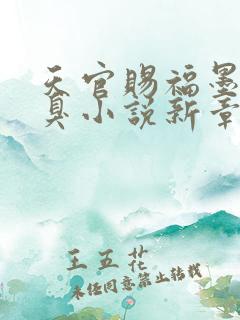 天官赐福墨
真小说新章
王五花
未经同意禁止转载